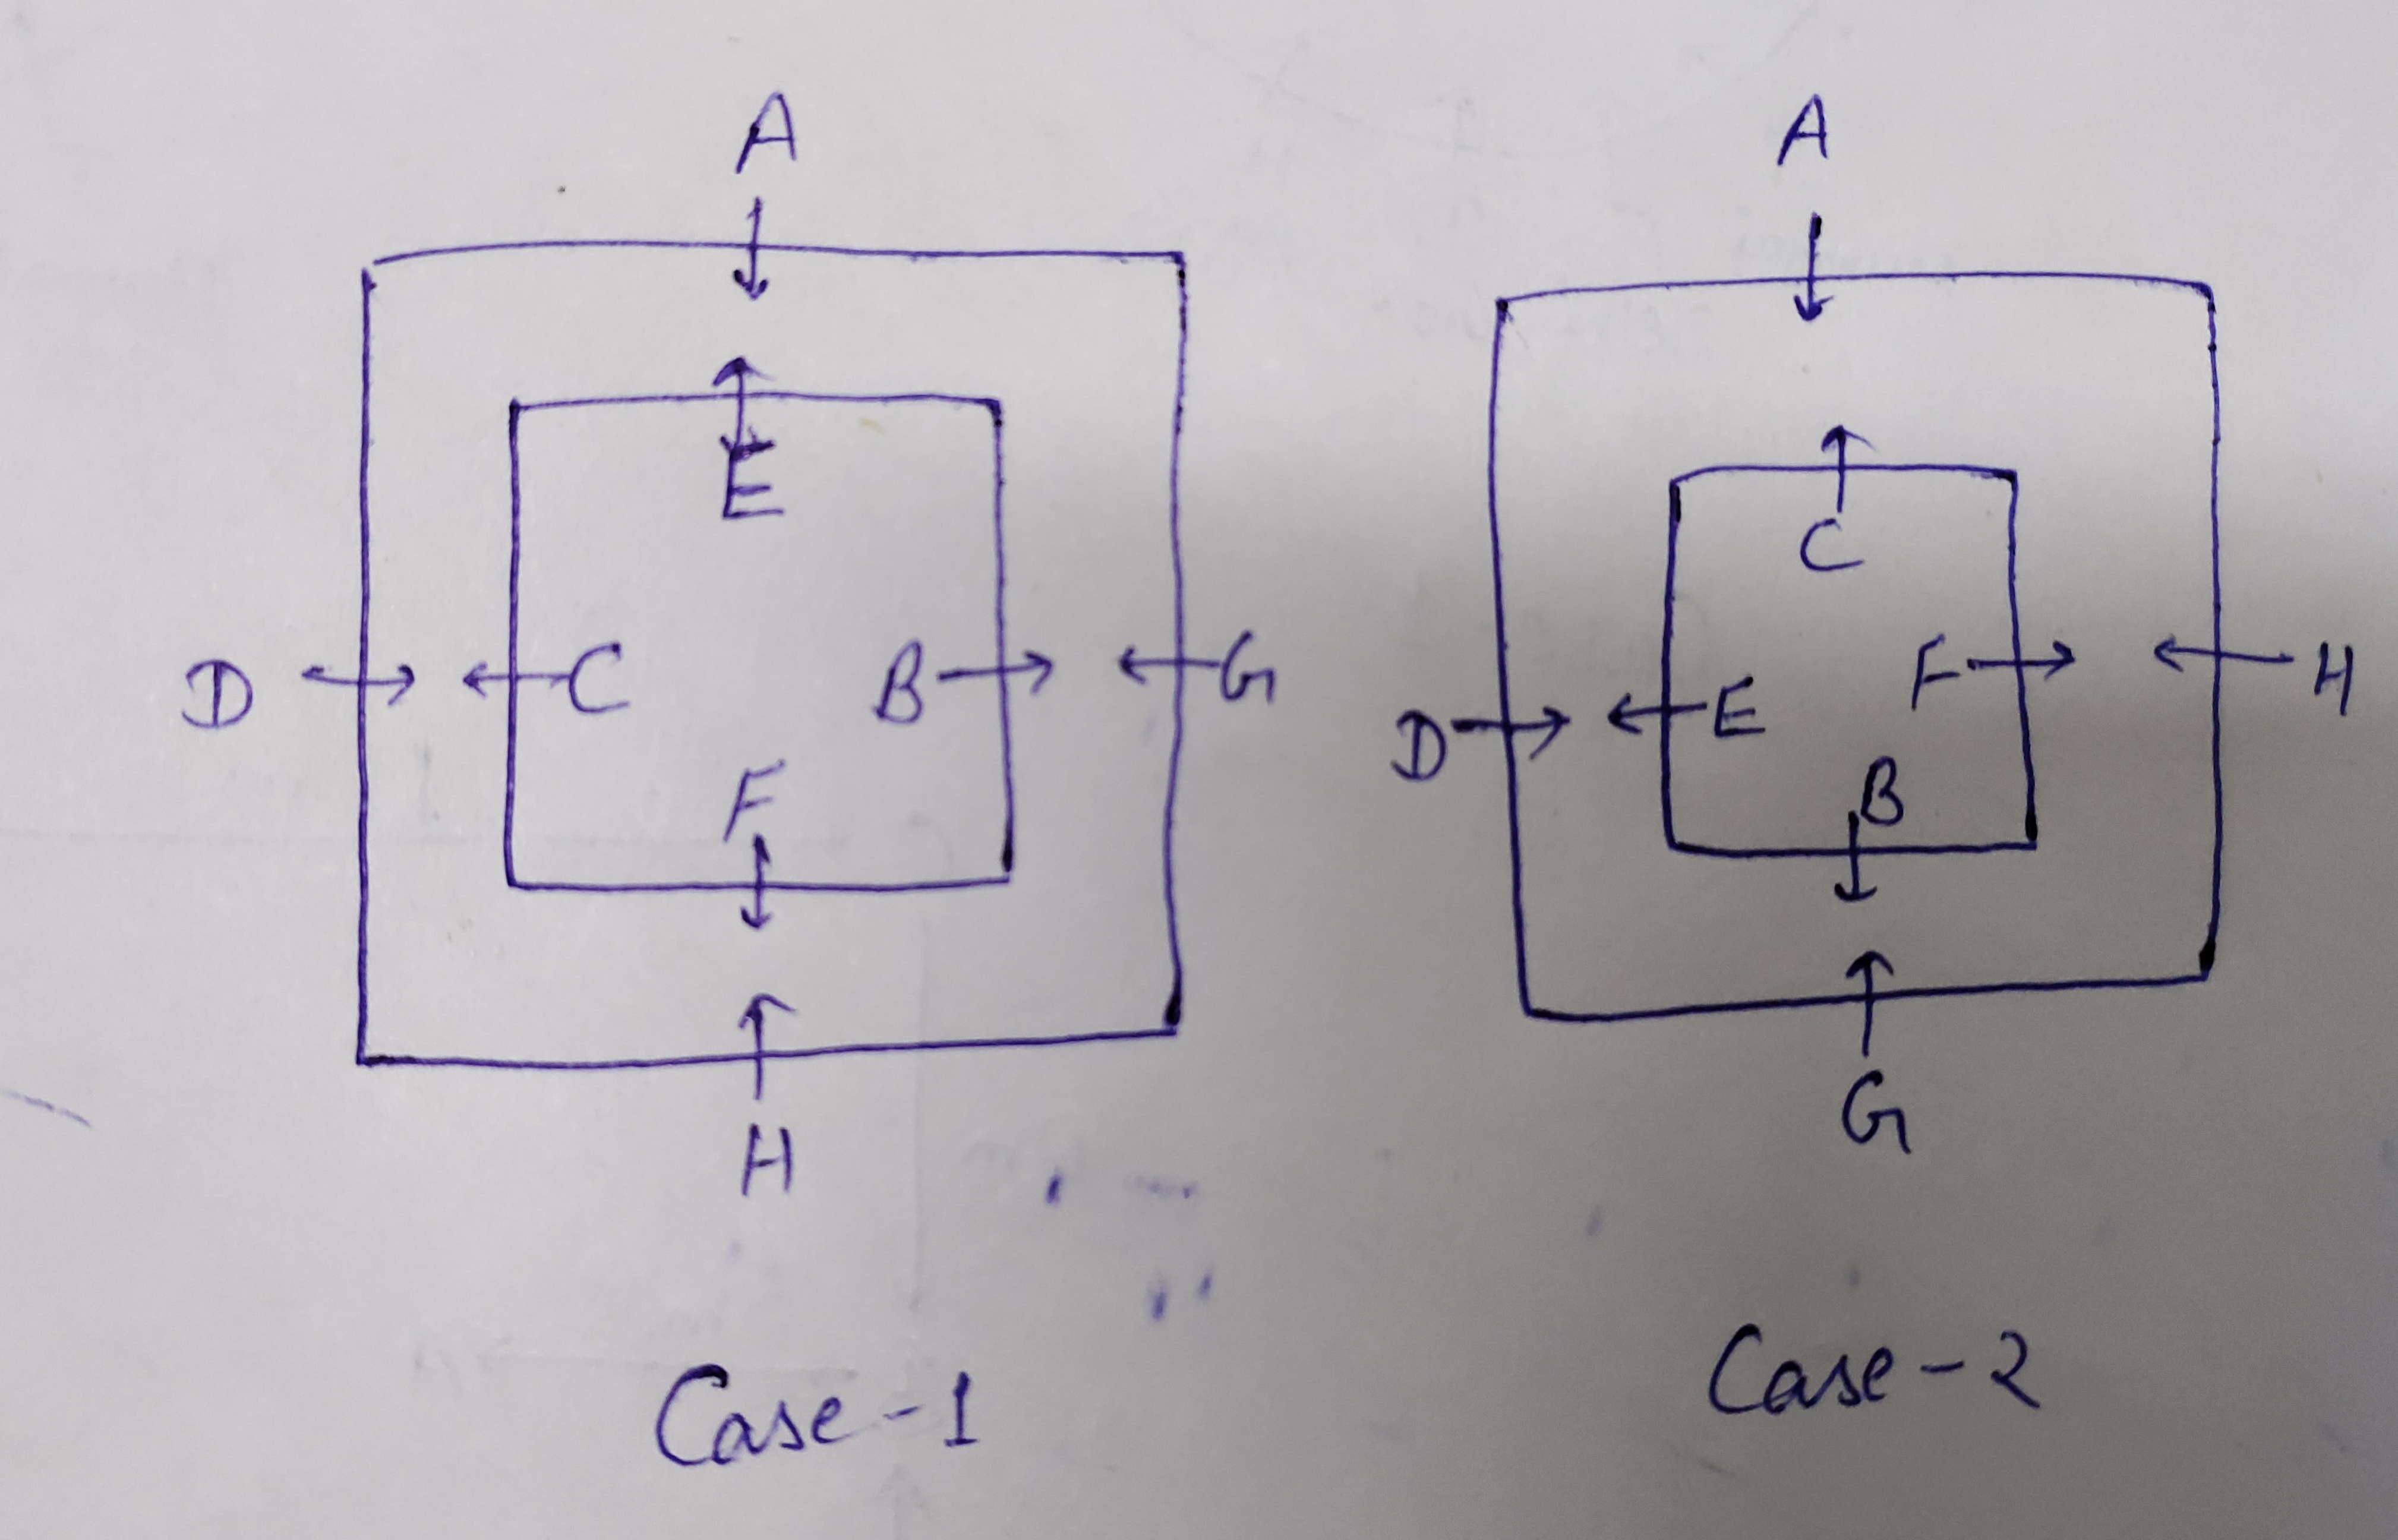 A
A
E
C
D
C
B
G
F
H
E
D
F
B
H
G
Case-1
Case-2